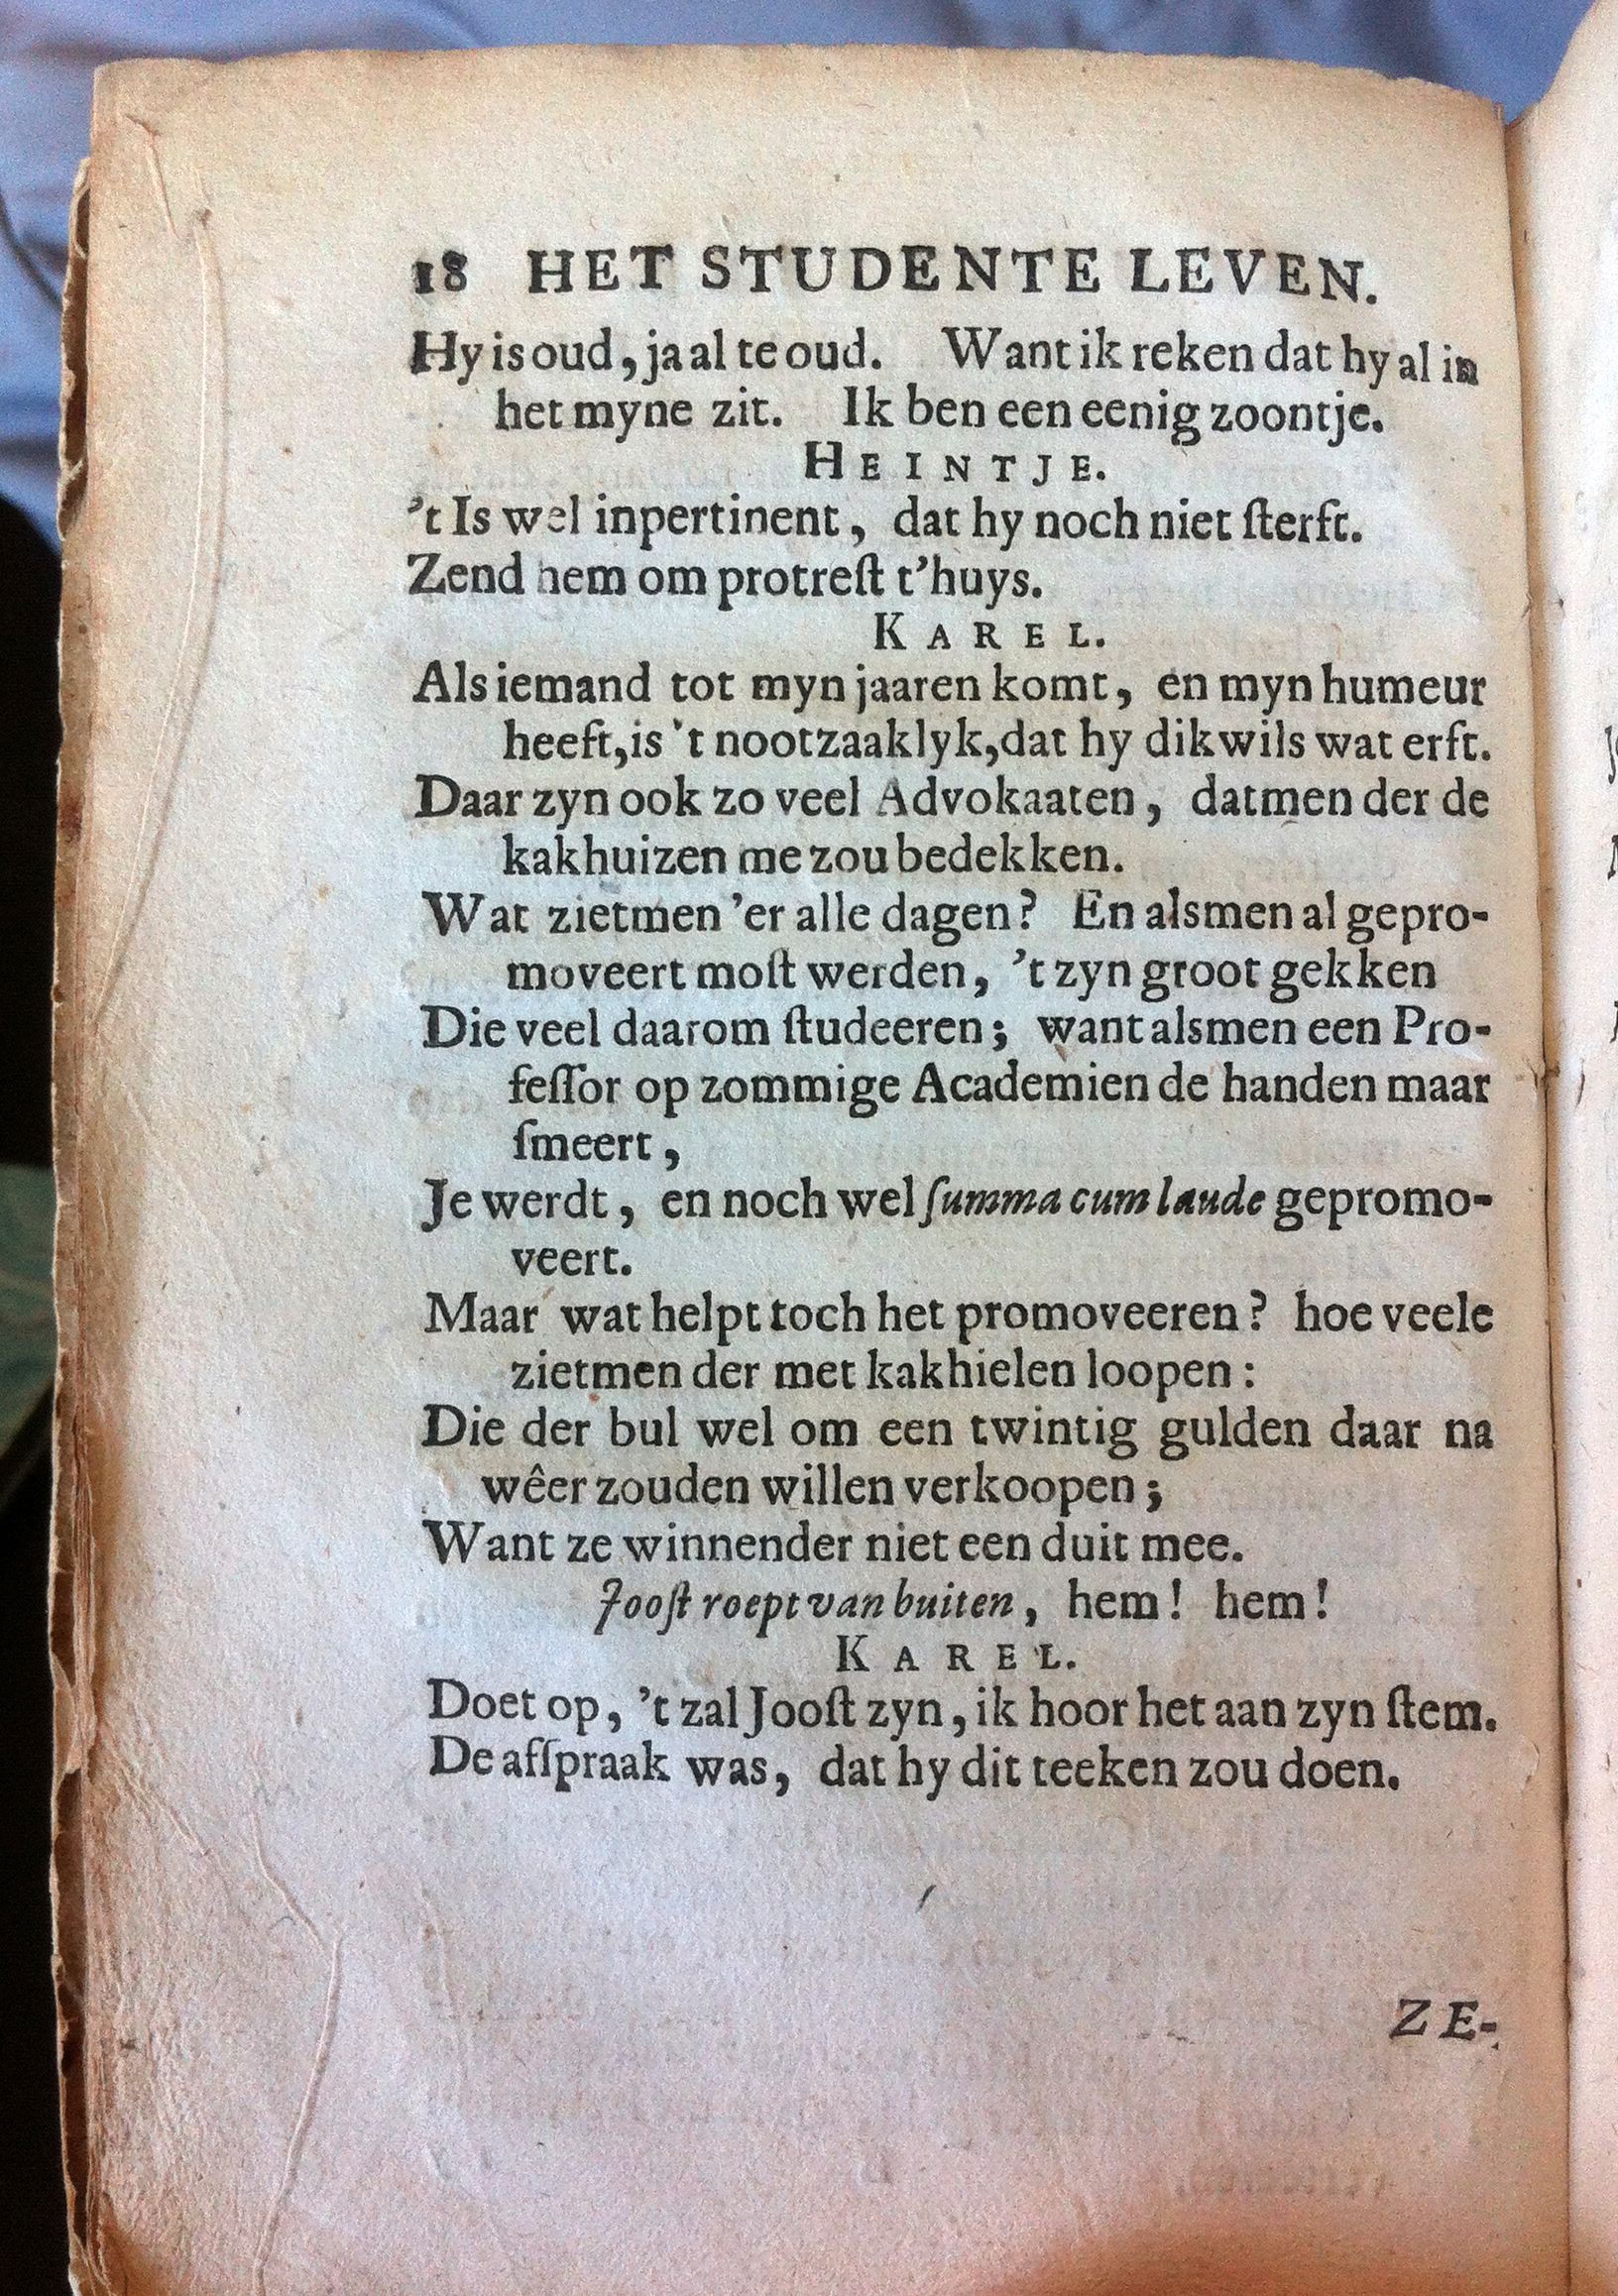 18 HET STUDENTE LEVEN.
Hy is oud, ja al te oud. Want ik reken dat hy al in
het myne zit. Ik ben een eenig zoontje.
HEINTJE.
't Is wel inpertinent, dat hy noch niet ſterft.
Zend hem om protreſt t'huys.
KAREL.
Als iemand tot myn jaaren komt, en myn humeur
heeft, is 't nootzaaklyk, dat hy dikwils wat erft.
Daar zyn ook zo veel Advokaaten, datmen der de
kakhuizen me zou bedekken.
Wat zietmen 'er alle dagen? En alsmen al gepro-
moveert moſt werden, 't zyn groot gekken
Die veel daarom ſtudeeren; want alsmen een Pro-
feſſor op zommige Academien de handen maar
ſmeert,
Je werdt, en noch wel ſumma cum laude gepromo-
veert.
Maar wat helpt toch het promoveeren? hoe veele
zietmen der met kakhielen loopen:
Die der bul wel om een twintig gulden daar na
wêer zouden willen verkoopen;
Want ze winnender niet een duit mee.
Jooſt roept van buiten, hem! hem!
KAREL.
Doet op, 't zal Jooſt zyn, ik hoor het aan zyn ſtem.
De afſpraak was, dat hy dit teeken zou doen.
ZE-